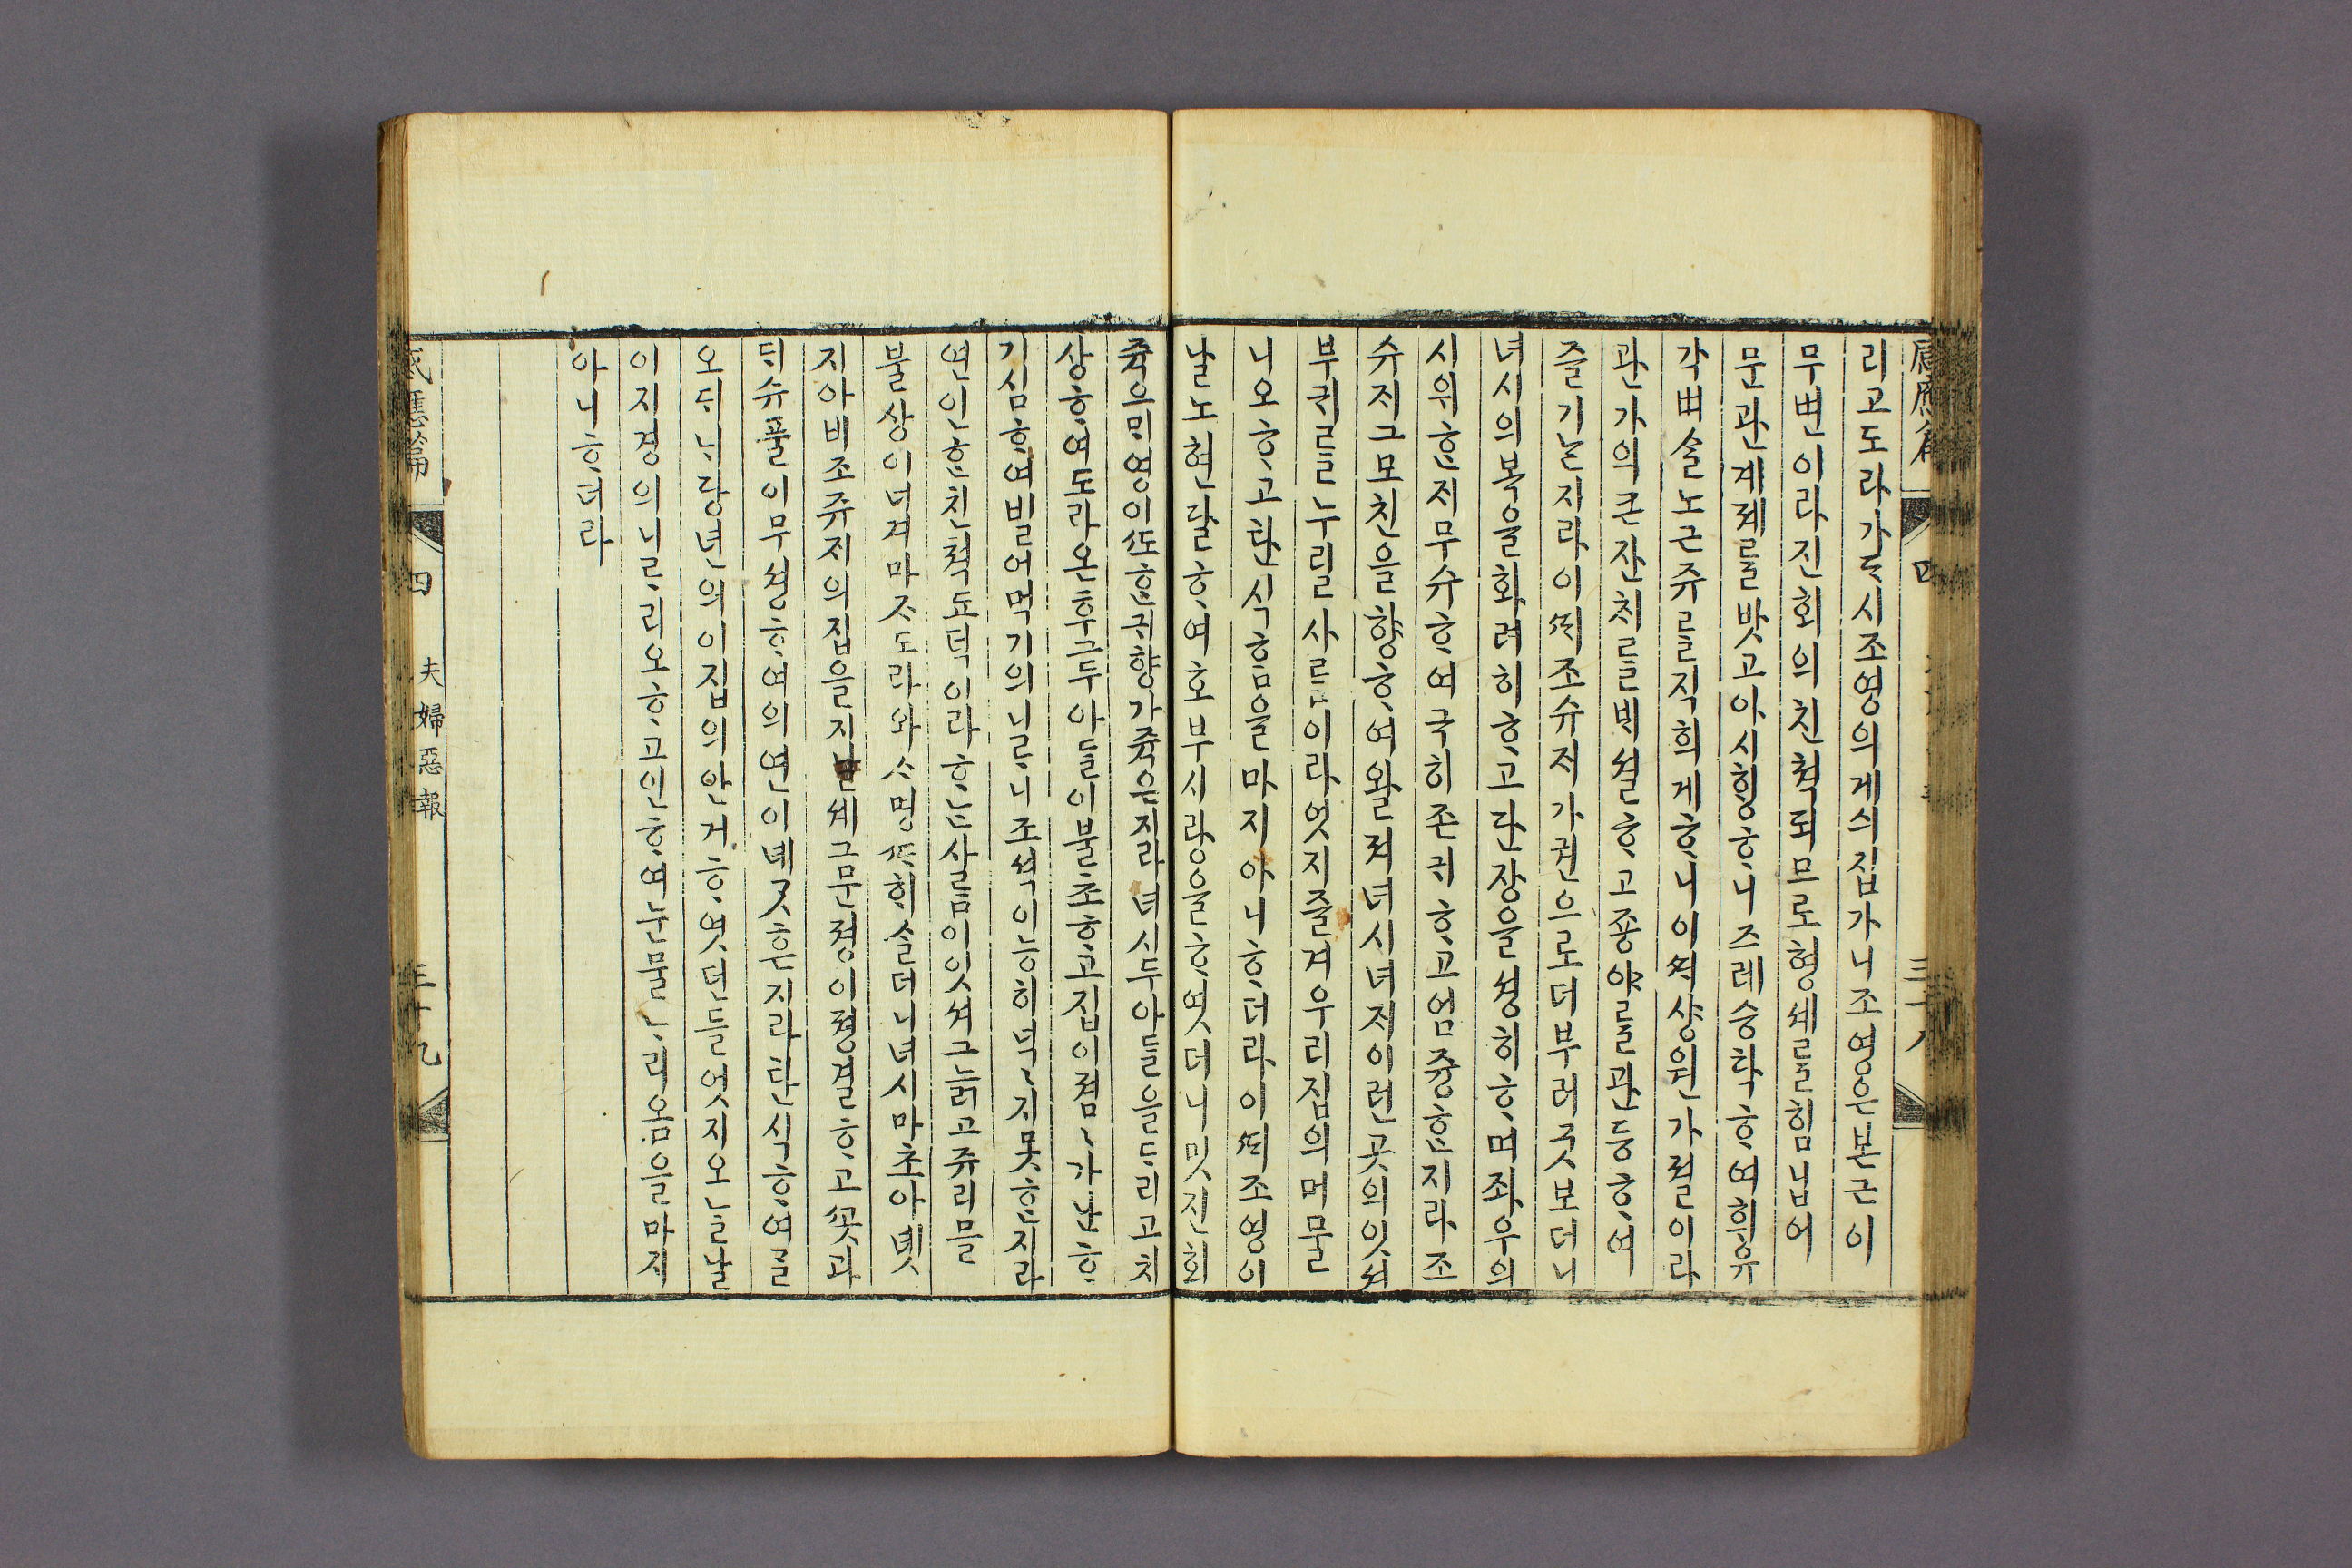 感應篇 四 三十八
리고도라가ᄃᆞᆺ시조영의게싀집가니조영은본ᄃᆡ이
무변이라진회의친쳑되므로형셰를힘닙어
문관계졔를밧고아시ᄒᆡᆼᄒᆞ니즈레승탁ᄒᆞ여희유
각솔노근쥬를직희게ᄒᆞ니이ᄯᅢ샹원가졀이라
관가의큰잔치를ᄇᆡ셜ᄒᆞ고종야를관등ᄒᆞ여
즐기ᄂᆞᆫ지라이ᄯᅢ조슈ᄌᆡ가권으로더부러굿보더니
녀시의복을화려히ᄒᆞ고단장을셩히ᄒᆞ며좌우의
시위ᄒᆞᆫᄌᆡ무슈ᄒᆞ여극히존귀ᄒᆞ고엄즁ᄒᆞᆫ지라조
슈ᄌᆡ그모친을향ᄒᆞ여왈져녀시녀ᄌᆡ이런곳의잇셔
부귀를누릴사ᄅᆞᆷ이라엇지즐겨우리집의머물
니오ᄒᆞ고탄식ᄒᆞᆷ을마지아니ᄒᆞ더라이ᄯᅢ조영이
날노현달ᄒᆞ여호부시랑을ᄒᆞ엿더니밋진회
쥭으ᄆᆡ영이ᄯᅩᄒᆞᆫ귀향가쥭은지라녀시두아들을ᄃᆞ리고치
상ᄒᆞ여도라온후그두아들이불쵸ᄒᆞ고집이졈〻가난ᄒᆞ
기심ᄒᆞ여빌어먹기의니ᄅᆞ니조셕이능히지못ᄒᆞᆫ지라
연인ᄒᆞᆫ친쳑도덕이라ᄒᆞᄂᆞᆫ사ᄅᆞᆷ이잇셔그늙고쥬리믈
불상이녀겨마ᄌᆞ도라와희솔더니녀시마초아녯
지아비조쥬ᄌᆡ의집을지날ᄉᆡ그문졍이졍결ᄒᆞ고ᄭᅩᆺ과
ᄃᆡ슈풀이무셩ᄒᆞ여의연이녯ᄀᆞᆺᄒᆞᆫ지라탄식ᄒᆞ여ᄀᆞᆯ
오ᄃᆡᄂᆡ당년의이집의안거ᄒᆞ엿던들엇지오ᄂᆞᆯ날
이지경의니ᄅᆞ리오ᄒᆞ고인ᄒᆞ여눈물ᄂᆞ려옴을마지
아니ᄒᆞ더라
感應篇 四 夫婦惡報 三十九